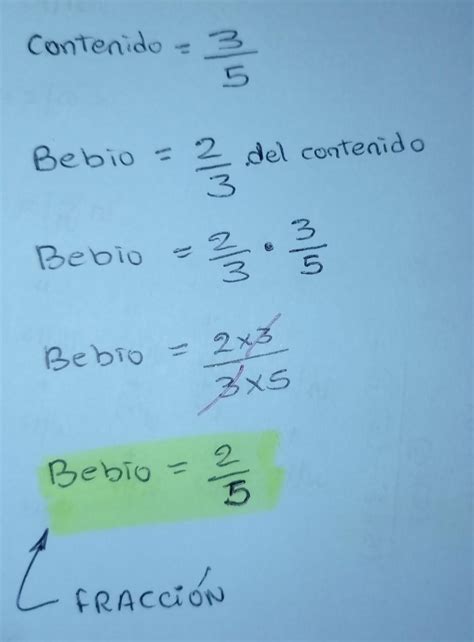 Contenido = 3/5
Bebio = 2/3 del contenido
Bebio = 2/3 · 3/5
Bebio = 2x3/3x5
Bebio = 2/5
FRACCIÓN